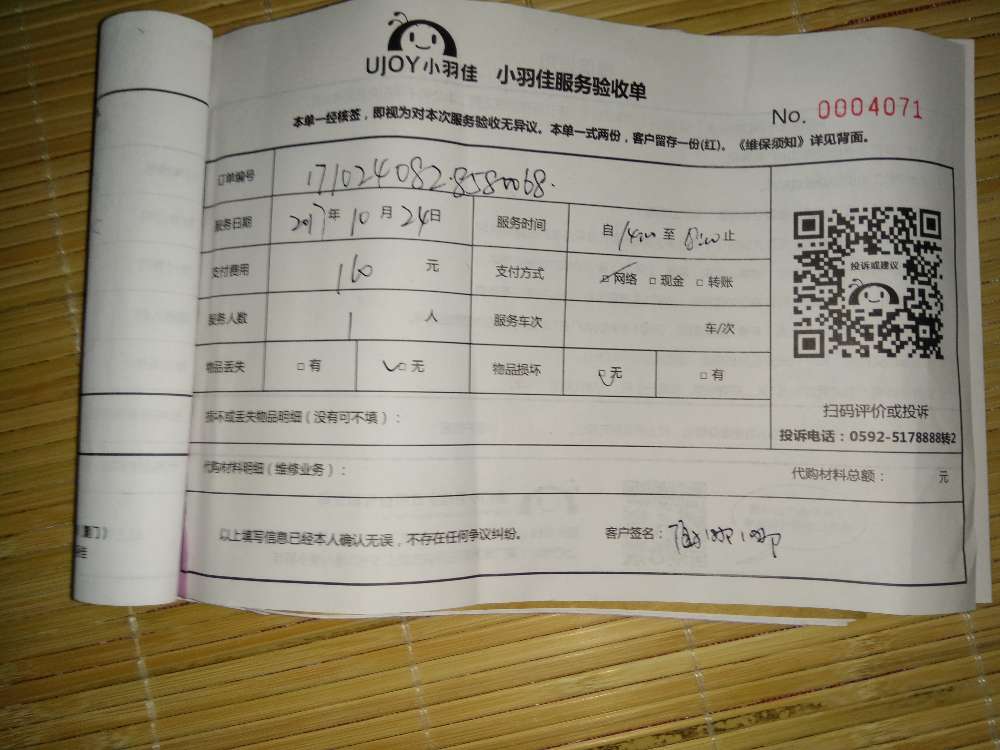 UJOY小羽佳 小羽佳服务验收单
No. 0004071
本单一经核签，即视为对本次服务验收无异议。本单一式两份，客户留存一份(红)。《维保须知》详见背面。
订单编号 171024082.8580068.
服务日期 2017年10月24日 服务时间 自14:00至8:00止
支付费用 160元 支付方式 □网络 □现金 □转账
服务人数 1人 服务车次 车/次
物品丢失 □有 □无 物品损坏 □无 □有
投诉或建议
扫码评价或投诉
投诉电话：0592-5178888转2
损坏或丢失物品明细（没有可不填）：
代购材料明细（维修业务）： 代购材料总额： 元
以上填写信息已经本人确认无误，不存在任何争议纠纷。 客户签名：